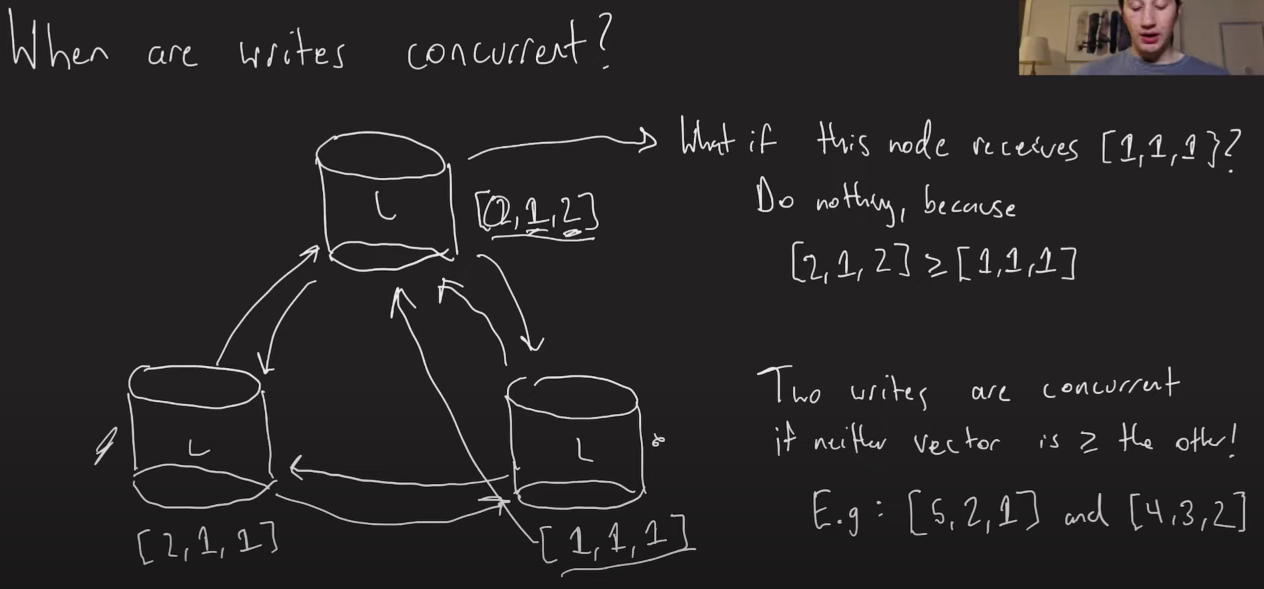 When are writes concurrent?
What if this node receives [1,1,1]?
Do nothing, because
[2,1,2] ≥ [1,1,1]
L
[2,1,2]
Two writes are concurrent
if neither vector is ≥ the other!
E.g: [5,2,1] and [4,3,2]
L
[2,1,1]
L
[1,1,1]